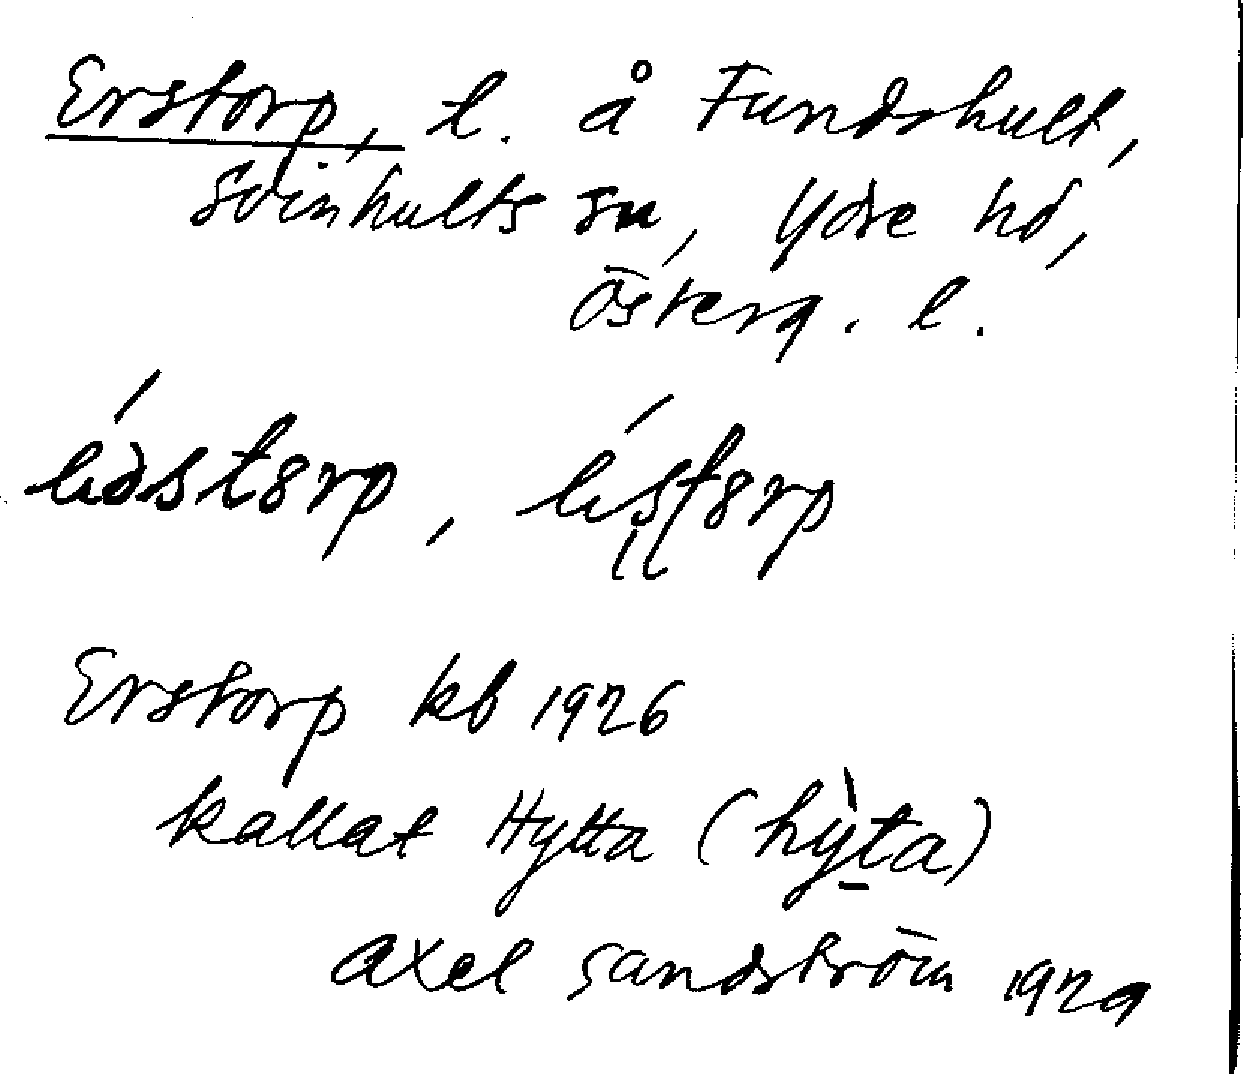 Erstorp, t. å Fundshult,
Svinhults sn, Ydre hd,
Österg. l.
Erstorp kb 1926
kallat Hytta (hỳ̱ta)
Axel Sandström 1929